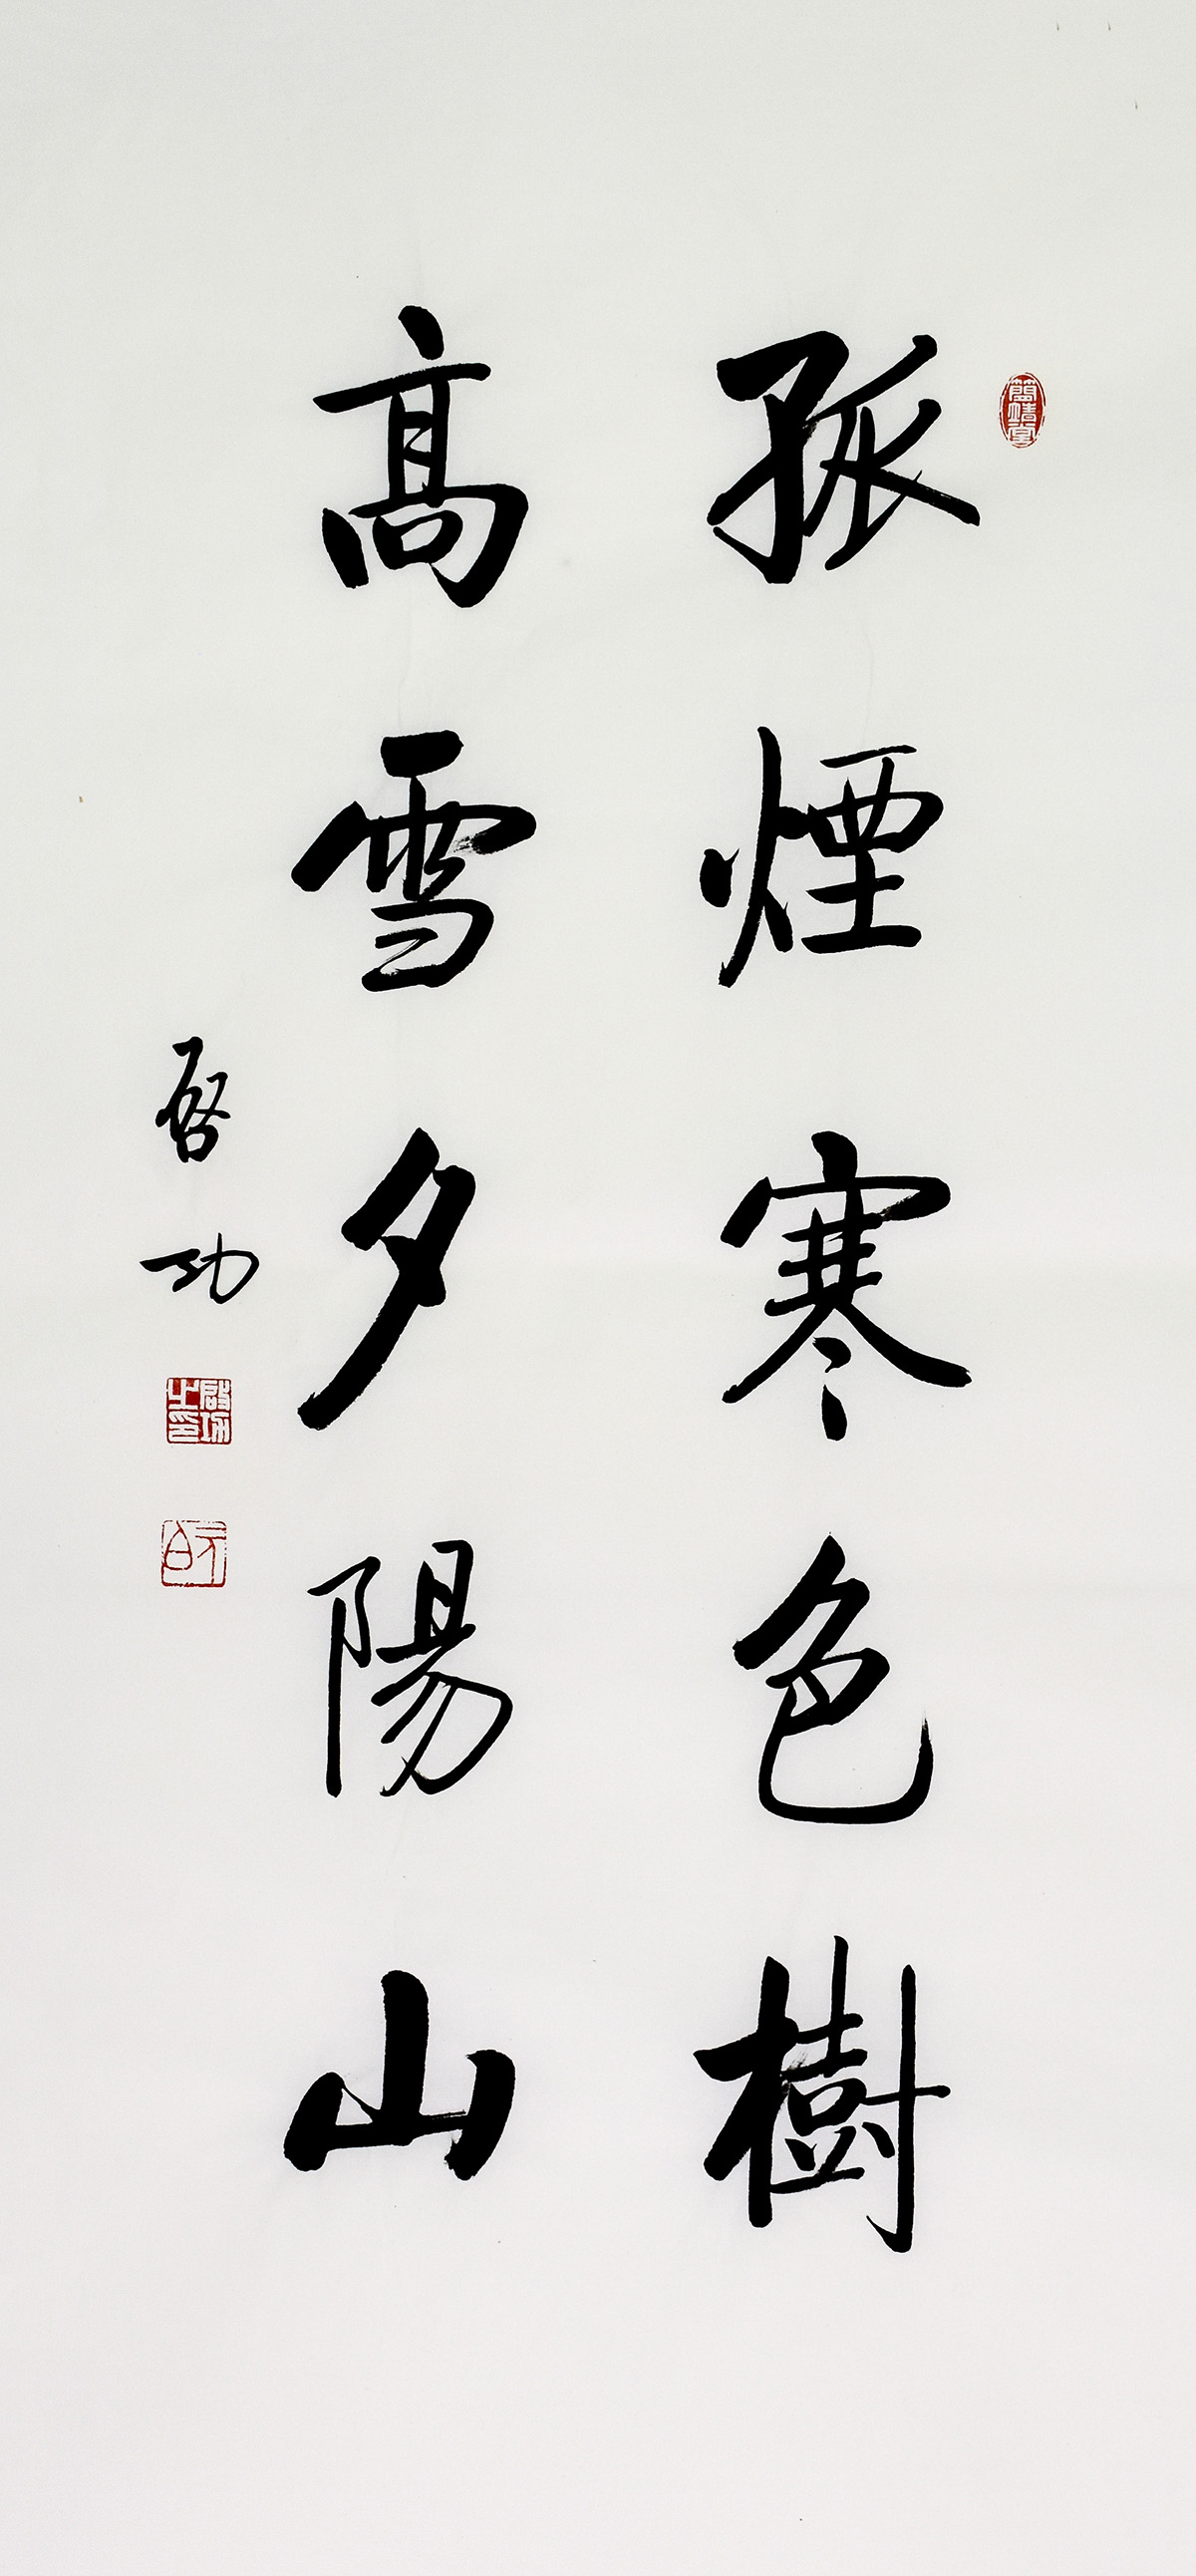 孤煙寒色樹
高雪夕陽山
啓功
簡靖堂
啟功之印
元白